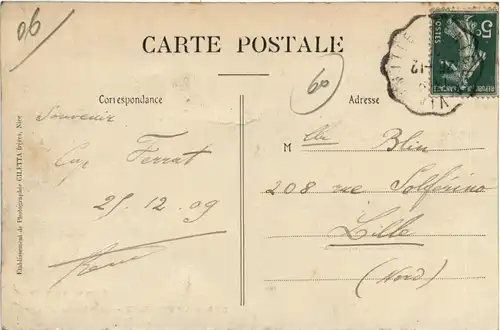 06
CARTE POSTALE
60
Correspondance
Adresse
Souvenir
Cap Ferrat
25.12.09
Mlle Blin
208 rue Solférino
Lille
(Nord)
Etablissement de Photographie GILETTA frères, Nice
5c
POSTES